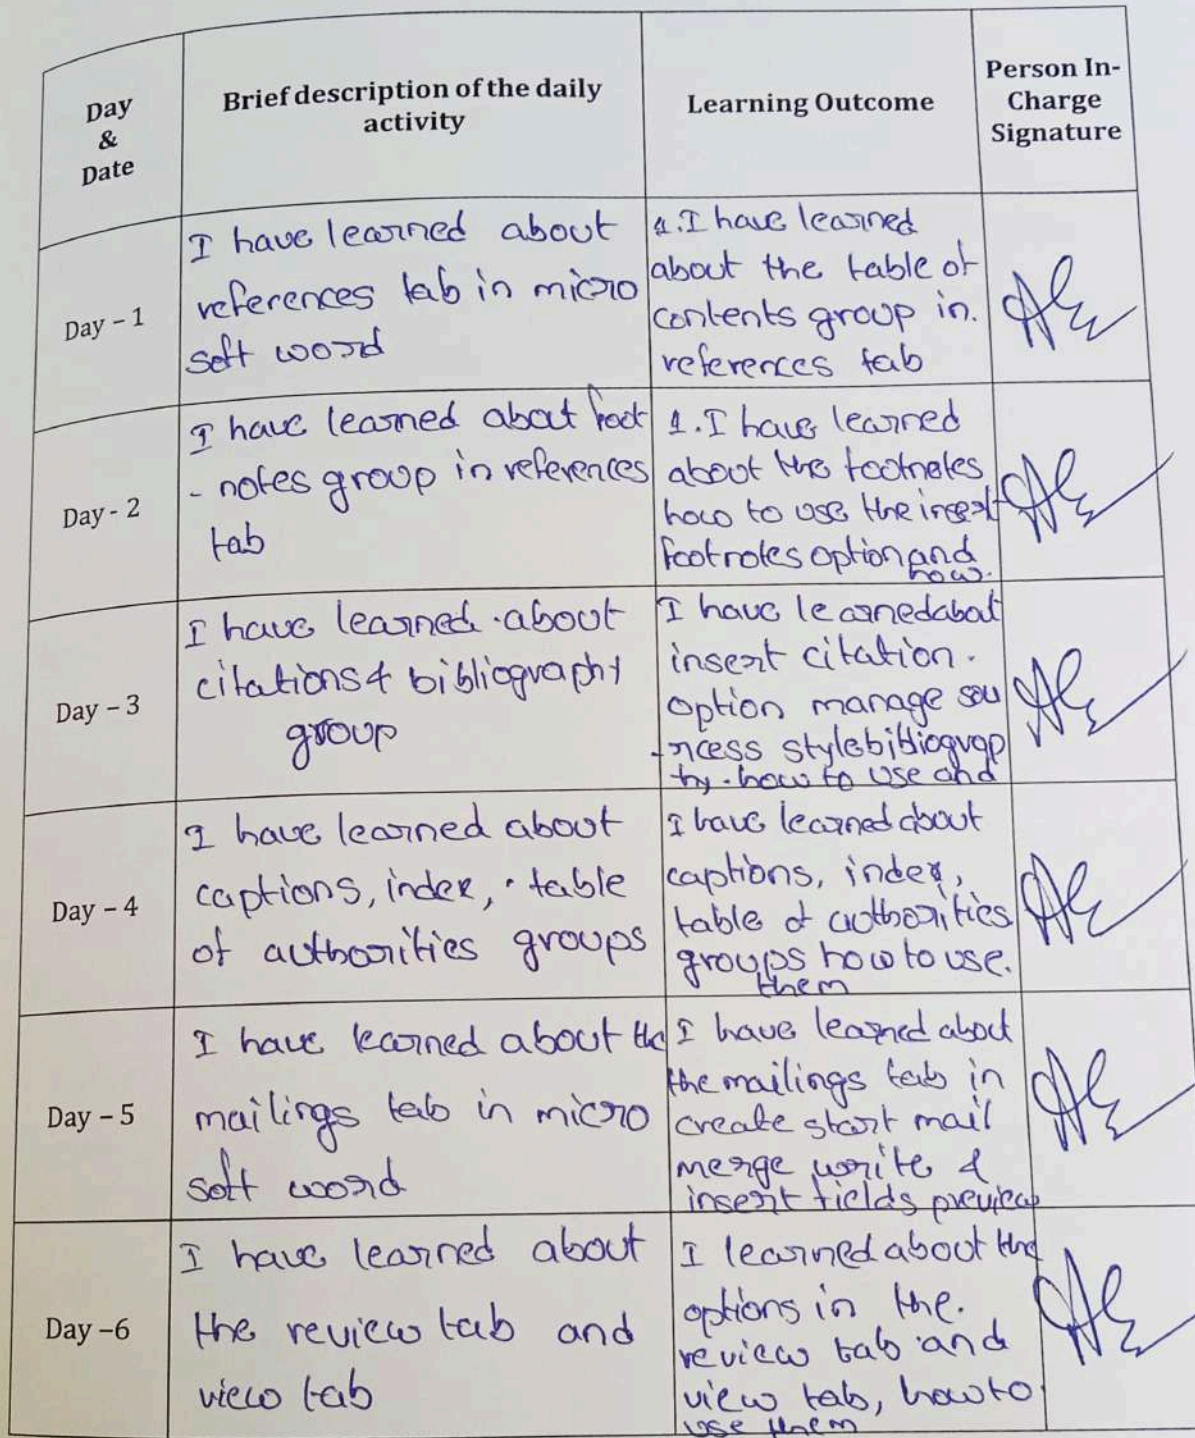 Day
&
Date
Brief description of the daily
activity
Learning Outcome
Person In-
Charge
Signature
Day – 1
I have learned about
references tab in micro
soft word
1. I have learned
about the table of
contents group in.
references tab
Day - 2
I have learned about foot
- notes group in references
tab
1. I have learned
about the footnotes
how to use the insert
footnotes option and
how.
Day – 3
I have learned about
citations & bibliography
group
I have learned about
insert citation.
option manage sou
-rcess style bibliograp
hy. how to use and
Day – 4
I have learned about
captions, index, table
of authorities groups
I have learned about
captions, index,
table of authorities
groups how to use.
them
Day – 5
I have learned about the
mailings tab in micro
soft word
I have learned about
the mailings tab in
create start mail
merge write &
insert fields preview
Day –6
I have learned about
the review tab and
view tab
I learned about the
options in the.
review tab and
view tab, how to
use them